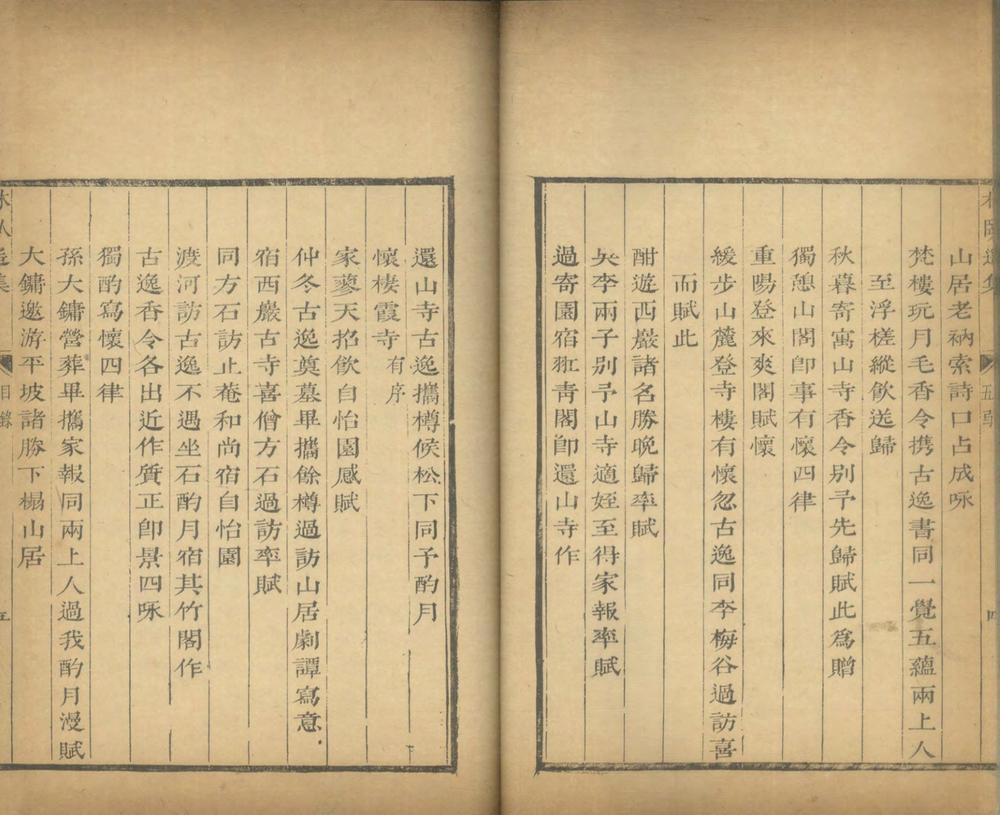 山居老衲索詩口占成咏
梵樓玩月毛香令携古逸書同一覺五蘊兩上人
至浮槎縱飲送歸
秋暮寄寓山寺香令别予先歸賦此為贈
獨憩山閣卽事有懷四律
重陽登來爽閣賦懷
緩步山麓登寺樓有懷忽古逸同李梅谷過訪喜
而賦此
酣遊西巖諸名勝晚歸率賦
吳李兩子别予山寺適姪至得家報率賦
過寄園宿㧢青閣卽還山寺作
還山寺古逸攜樽候松下同予酌月
懷棲霞寺有序
家蓼天招飲自怡園感賦
仲冬古逸奠墓畢攜餘樽過訪山居劇譚寫意
宿西巖古寺喜僧方石過訪率賦
同方石訪止菴和尚宿自怡園
渡河訪古逸不遇坐石酌月宿其竹閣作
古逸香令各出近作質正卽景四咏
獨酌寫懷四律
孫大鏞營葬畢攜家報同兩上人過我酌月漫賦
大鏞邀游平坡諸勝下榻山居
目錄
五